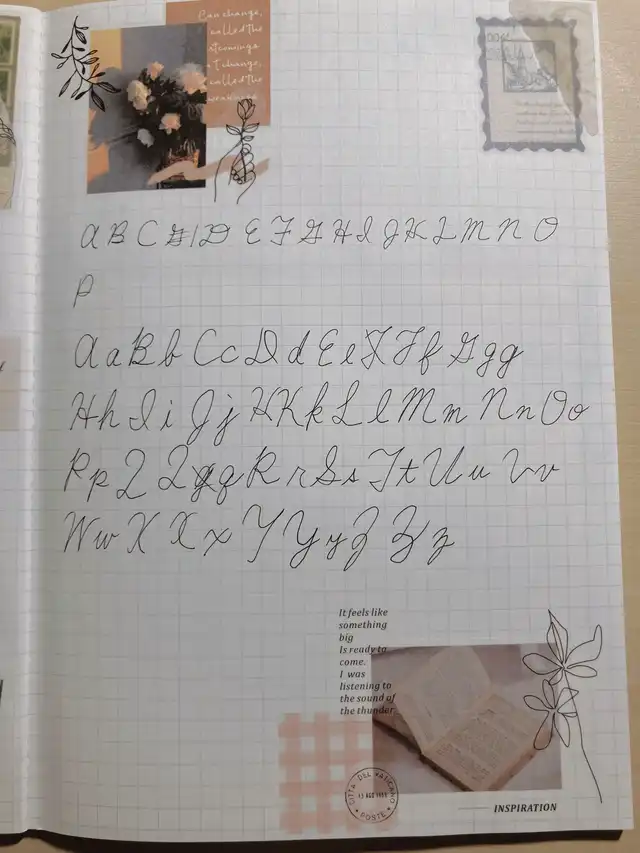 I can change,
called the
stcomings
't change,
called the
weakness
A B C D E F G H I J K L M N O
P
A a B b C c D d E e F F f G g g
H h I i J j K K k L l M m N n O o
P p Q Q q q R r S s T t U u V v
W w X X x Y Y y Z Z z
It feels like
something
big
Is ready to
come.
I was
listening to
the sound of
the thunder.
CITTA DEL VATICANO
13 AGO 1959
POSTE
INSPIRATION